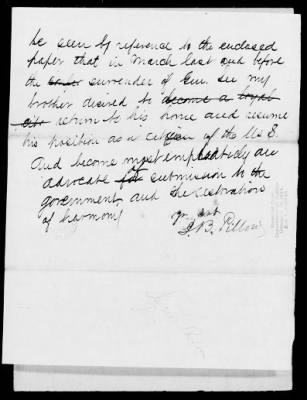 be seen by reference to the enclosed
paper that in March last and before
the surrender of Gen. Lee my
brother desired to become a loyal
return to his home and resume
his position as a citizen of the U S
And become most emphatically an
advocate for submission to the
government and the restoration
of harmony
J. B. Pillow